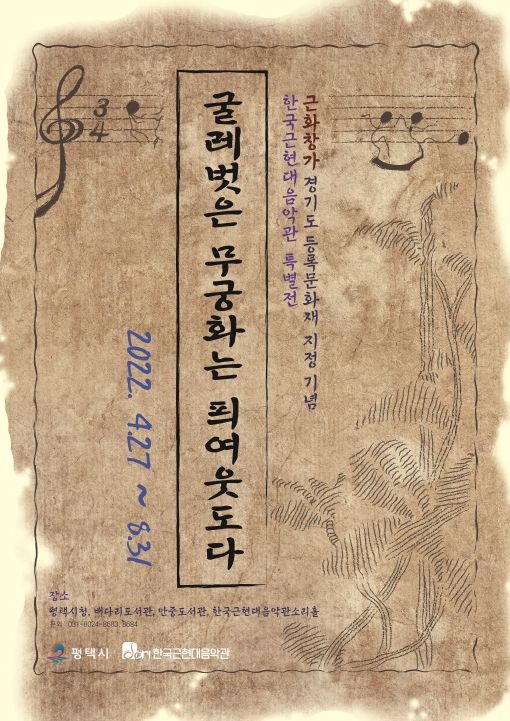 근화창가 경기도 등록문화재 지정 기념
한국근현대음악관 특별전
굴레벗은 무궁화는 픠여웃도다
2022. 4.27 ~ 8.31
3
4
장소
평택시청, 배다리도서관, 안중도서관, 한국근현대음악관소리울
문의 031-8024-8683, 8684
평택시
한국근현대음악관